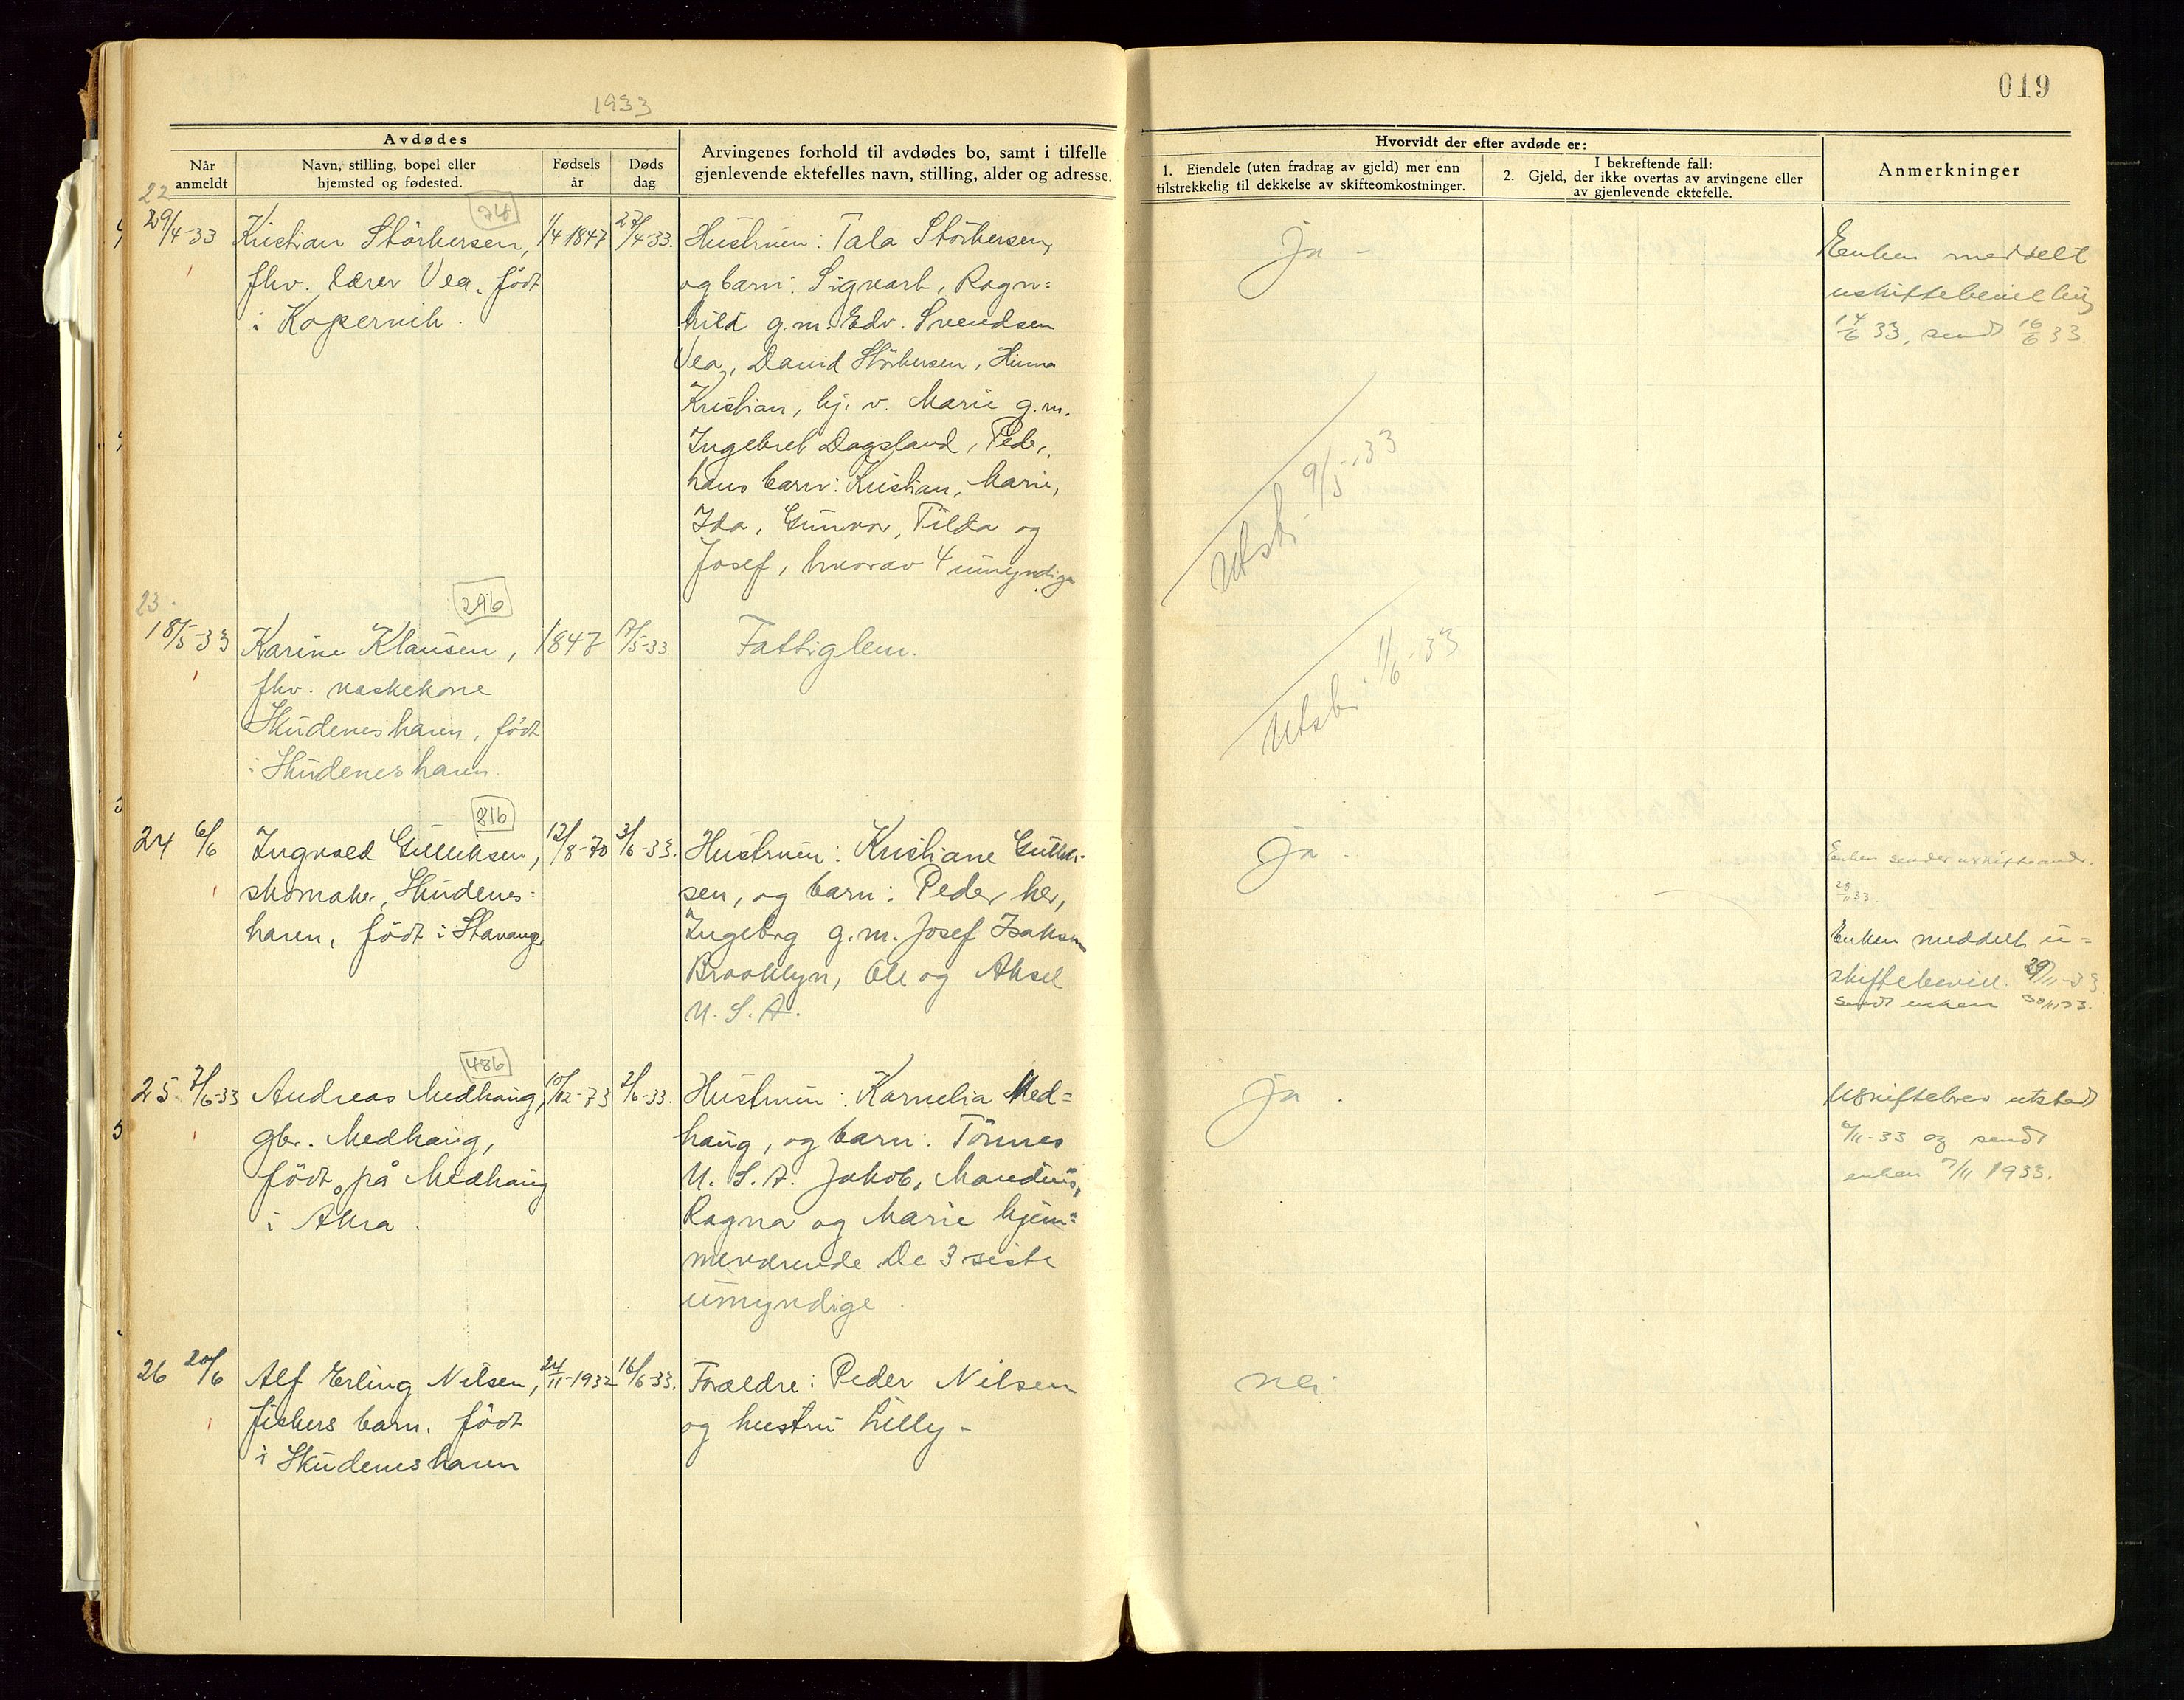 019
1933
Avdødes
Når anmeldt
Navn, stilling, bopel eller hjemsted og fødested.
Fødsels år
Døds dag
Arvingenes forhold til avdødes bo, samt i tilfelle
gjenlevende ektefelles navn, stilling, alder og adresse.
Hvorvidt der efter avdøde er:
1. Eiendele (uten fradrag av gjeld) mer enn
tilstrekkelig til dekkelse av skifteomkostninger.
I bekreftende fall:
2. Gjeld, der ikke overtas av arvingene eller
av gjenlevende ektefelle.
Anmerkninger
22
74
29/4-33
Kristian Störkersen,
fhv. lærer Vea, födt
i Kopervik.
1/4 1847
27/4-33.
Hustruen: Tala Störkersen,
og barn: Sigvart, Ragn=
hild g.m. Edv. Svendsen
Vea, David Störkersen,
Kristian, hj. v. Marie g.m.
Ingebret Dagsland, Peder,
hans barn: Kristian, Marie,
Ida, Gunvor, Tilda og
Josef, hvorav 4 umyndige
ja -
Utskr. 9/5-33
Enken meddelt
uskiftebevilling
14/6 33, sendt 16/6 33.
23.
296
18/5-33
Karine Klausen,
fhv. vaskekone
Skudeneshavn, födt
i Skudeneshavn.
1847
17/5-33.
Fattiglem.
Utskr. 1/6-33
816
24 6/6
Ingvald Gulliksen,
skomaker, Skudenes=
havn, födt i Stavanger
12/8-70
3/6-33.
Hustruen: Kristiane Gullik-
sen, og barn: Peder her,
Ingeborg g.m. Josef Isaksen
Brooklyn, Ole og Aksel
U.S.A.
ja.
Enken sender uskifteandr.
28/11 33.
Enken meddelt u=
skiftebevill. 29/11-33.
sendt enken 30/11 33.
486
25. 7/6-33
Andreas Medhaug,
gbr. Medhaug,
födt på Medhaug
i Åkra.
10/12-73
2/6-33.
Hustruen: Kornelia Med=
haug, og barn: Tönnes
U.S.A. Jakob, Mandius,
Ragna og Marie hjem=
meværende De 3 siste
umyndige.
ja.
Uskiftebrev utstedt
/11-33 og sendt
enken 7/11 1933.
26 20/6
Alf Erling Nilsen,
fiskers barn, födt
i Skudeneshavn
24/11-1932
16/6-33.
Forældre: Peder Nilsen
og hustru Lilly -
nei